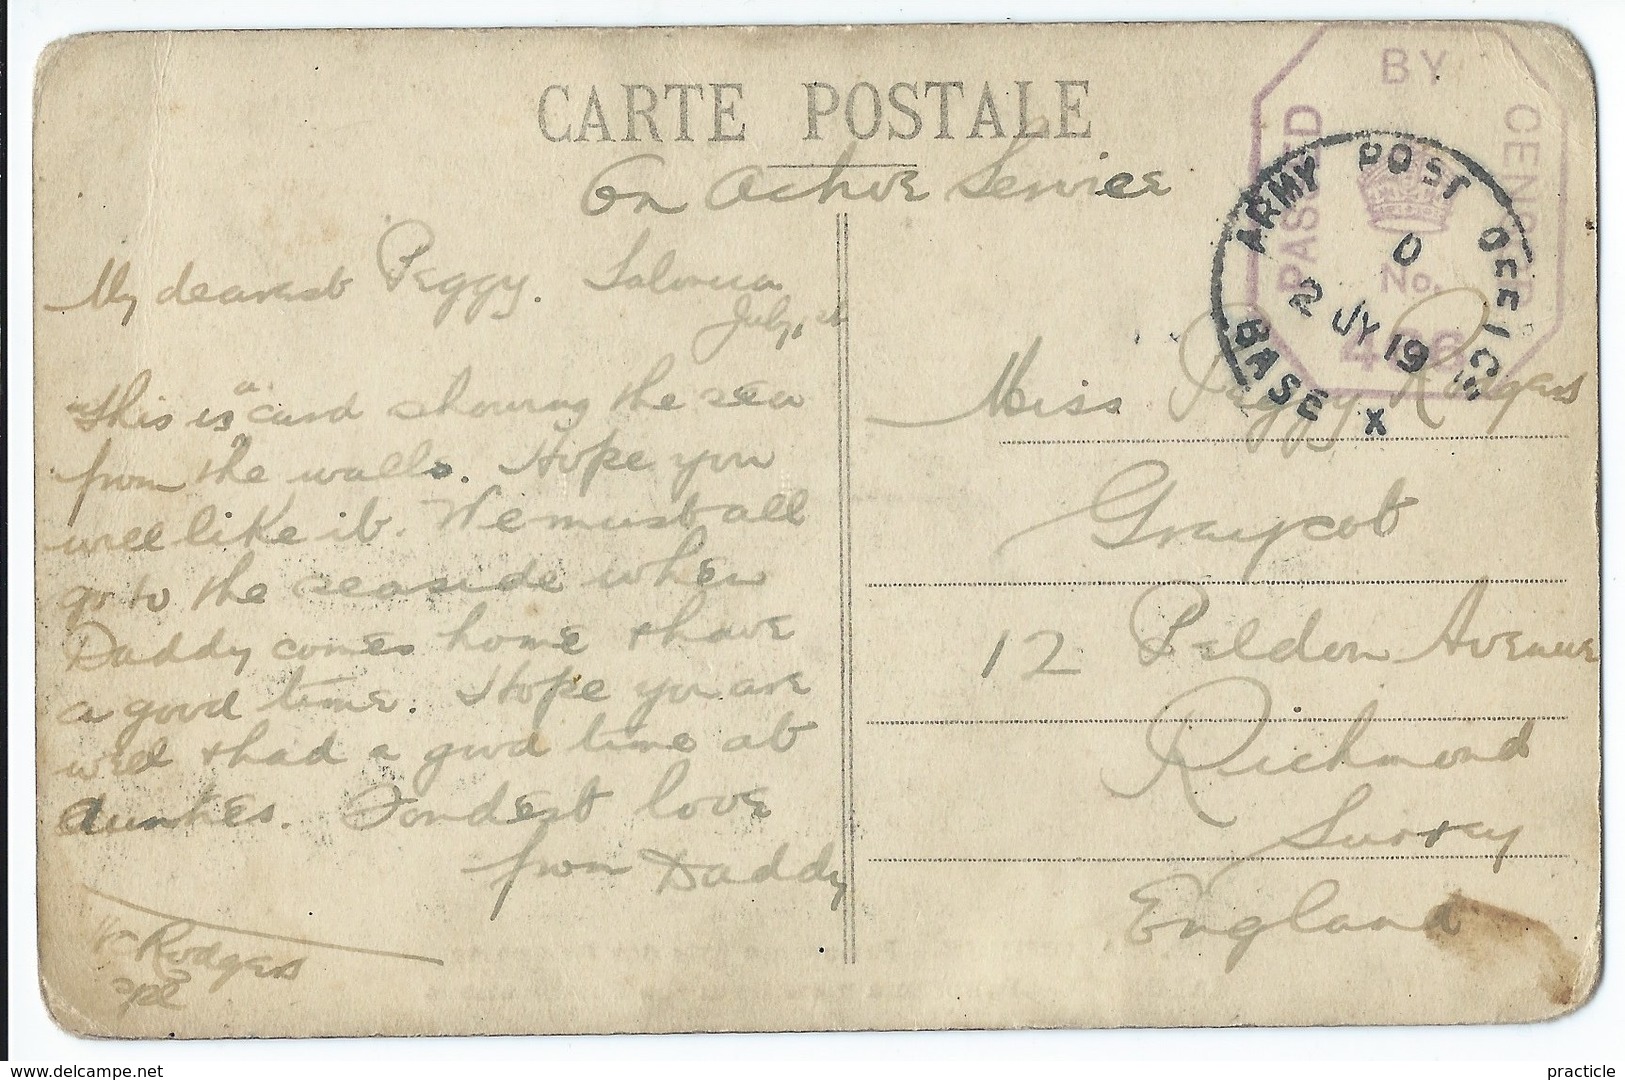 CARTE POSTALE
On Active Service
PASSED BY CENSOR
No.
ARMY POST OFFICE
0
2 JY 19
BASE X
My dearest Peggy. Salonica
July 1st
This is a card showing the sea
from the walls. Hope you
will like it. We must all
go to the seaside when
Daddy comes home & have
a good time. Hope you are
well & had a good time at
Aunties. Fondest love
from Daddy
Rodgers
Cpl
Miss Peggy Rodgers
Graycot
12 Peldon Avenue
Richmond
Surrey
England
www.delcampe.net
practicle